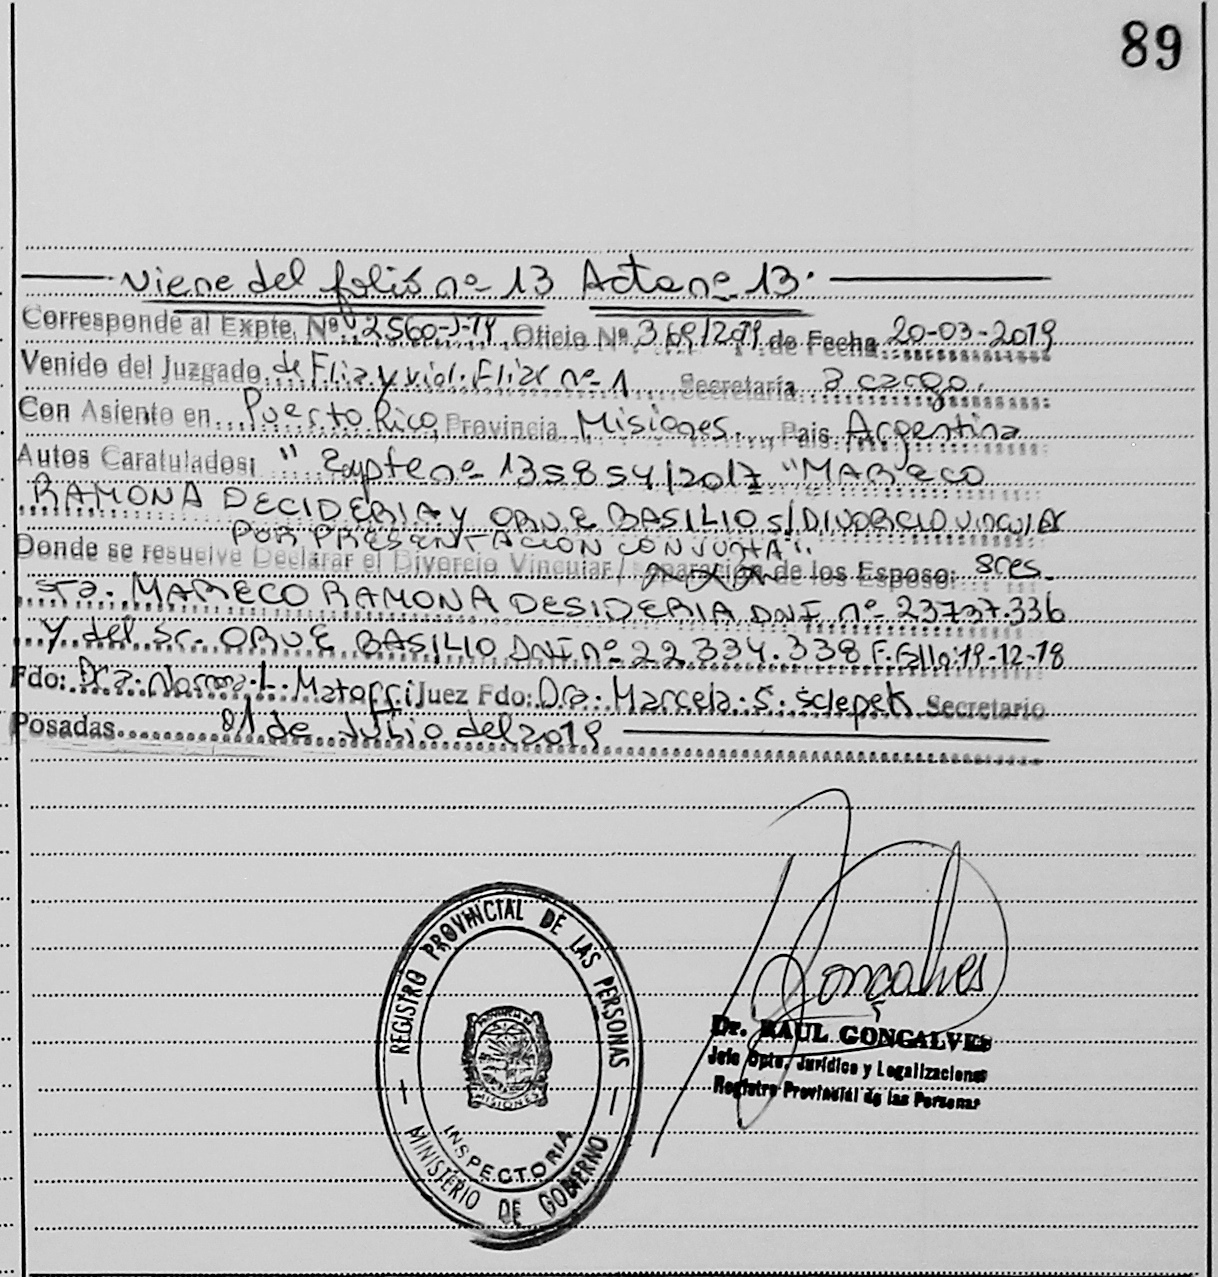 89
Viene del folio nº 13 Acta nº 13.
Corresponde al Expte. Nº 2560-J-19, Oficio Nº 369/2019 de Fecha 20-03-2019
Venido del Juzgado de Flia y viol. Fliar nº 1 Secretaría a cargo.
Con Asiento en Puerto Rico, Provincia Misiones, Pais Argentina
Autos Caratulados: " Expte nº 135854/2017 "MARECO
RAMONA DECIDERIA Y ORUE BASILIO s/ DIVORCIO vincular
POR PRESENTACION CONJUNTA".
Donde se resuelve Declarar el Divorcio Vincular / de los Esposo: Sres.
Sra. MARECO RAMONA DESIDERIA DNI nº 23737.336
Y del Sr. ORUE BASILIO DNI nº 22.334.338 F. Fllo: 19-12-18
Fdo: Dra. Norma L. Juez Fdo: Dra. Marcela S. Sclepek Secretario
Posadas 01 de Julio del 2019
REGISTRO PROVINCIAL DE LAS PERSONAS
PROVINCIA DE
MISIONES
INSPECTORIA
MINISTERIO DE GOBIERNO
Gonçalves
Dr. RAUL GONÇALVES
Jefe Dpto. Jurídico y Legalizaciones
Registro Provincial de las Personas